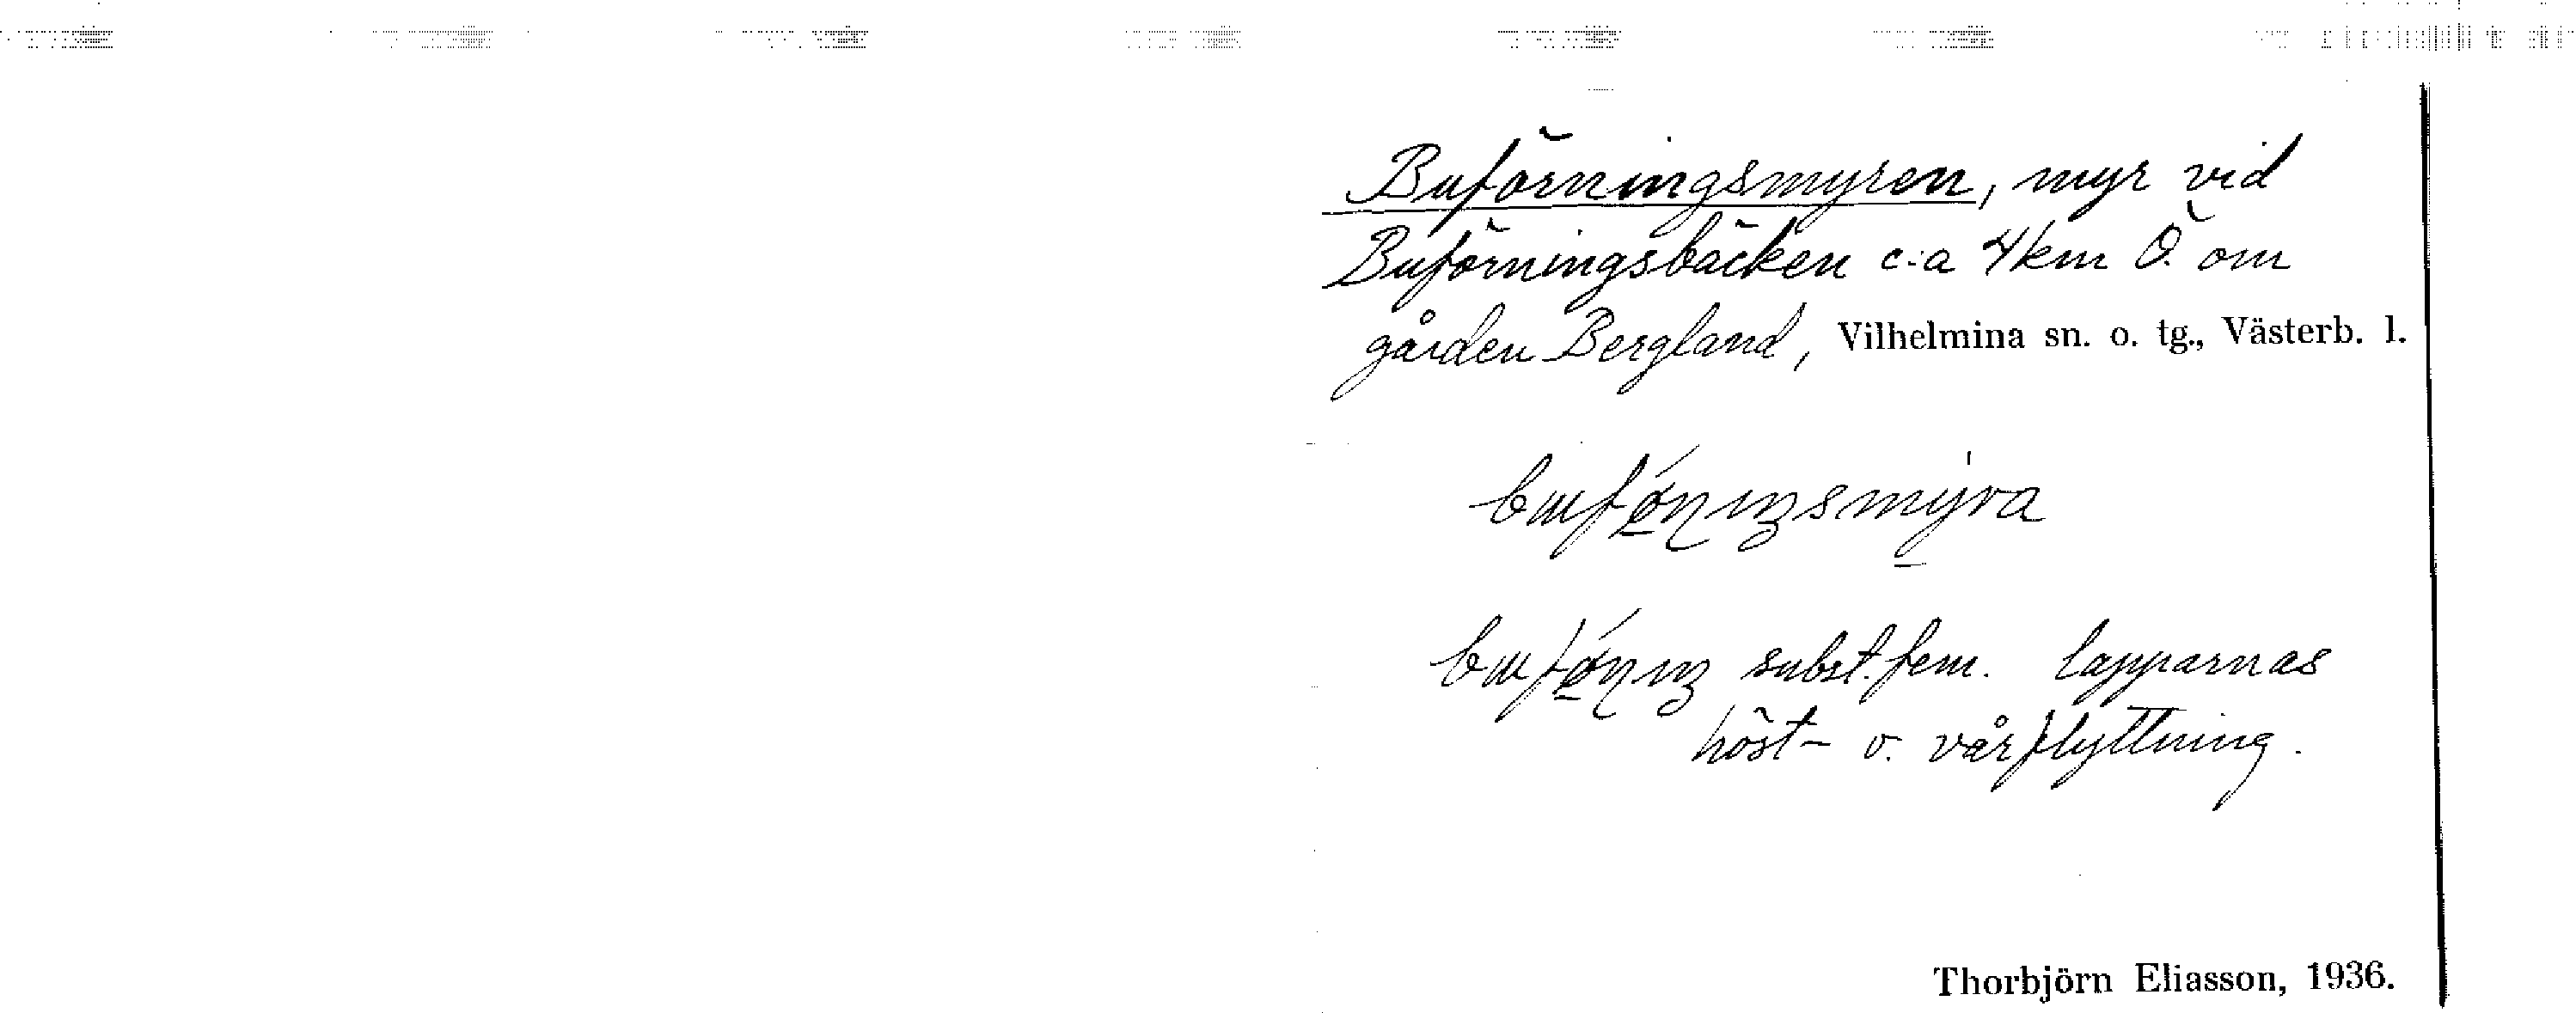 Buförningsmyren, myr vid
Buförningsbäcken c:a 4 km Ö. om
gården Bergland, Vilhelmina sn. o. tg., Västerb. l.
subst. fem. lapparnas
höst- o. vårflyttning.
Thorbjörn Eliasson, 1936.